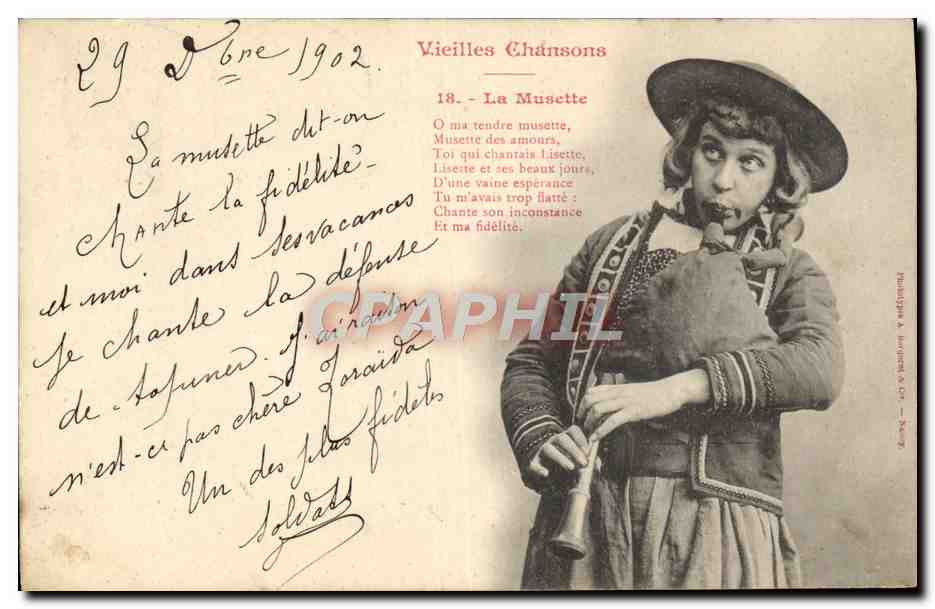 29 Dbre 1902.
La musette dit-on
chante la fidélité -
et moi dans ses vacances
je chante la défense
de . J'ai raison
n'est-ce pas chère Zoraïda
Un des plus fidèles
soldats
Vieilles Chansons
18. - La Musette
O ma tendre musette,
Musette des amours,
Toi qui chantais Lisette,
Lisette et ses beaux jours,
D'une vaine espérance
Tu m'avais trop flatté :
Chante son inconstance
Et ma fidélité.
Phototypie A. Bergeret & Cie. - Nancy.
CPAPHIL